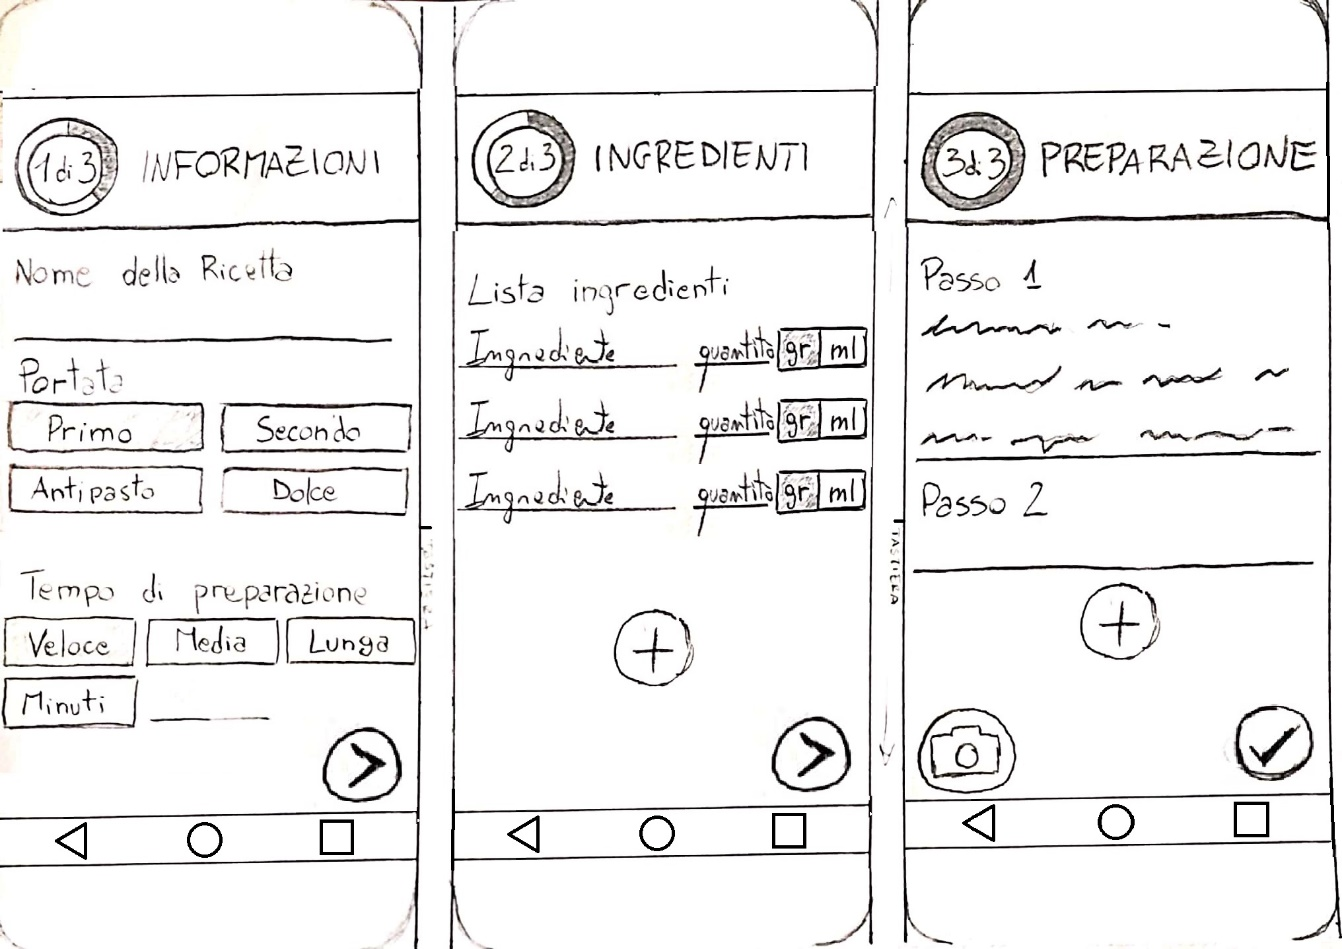 1 di 3 INFORMAZIONI
Nome della Ricetta
Portata
Primo Secondo
Antipasto Dolce
Tempo di preparazione
Veloce Media Lunga
Minuti
2 di 3 INGREDIENTI
Lista ingredienti
Ingrediente quantità gr ml
Ingrediente quantità gr ml
Ingrediente quantità gr ml
TASTIERA
3 di 3 PREPARAZIONE
Passo 1
Passo 2